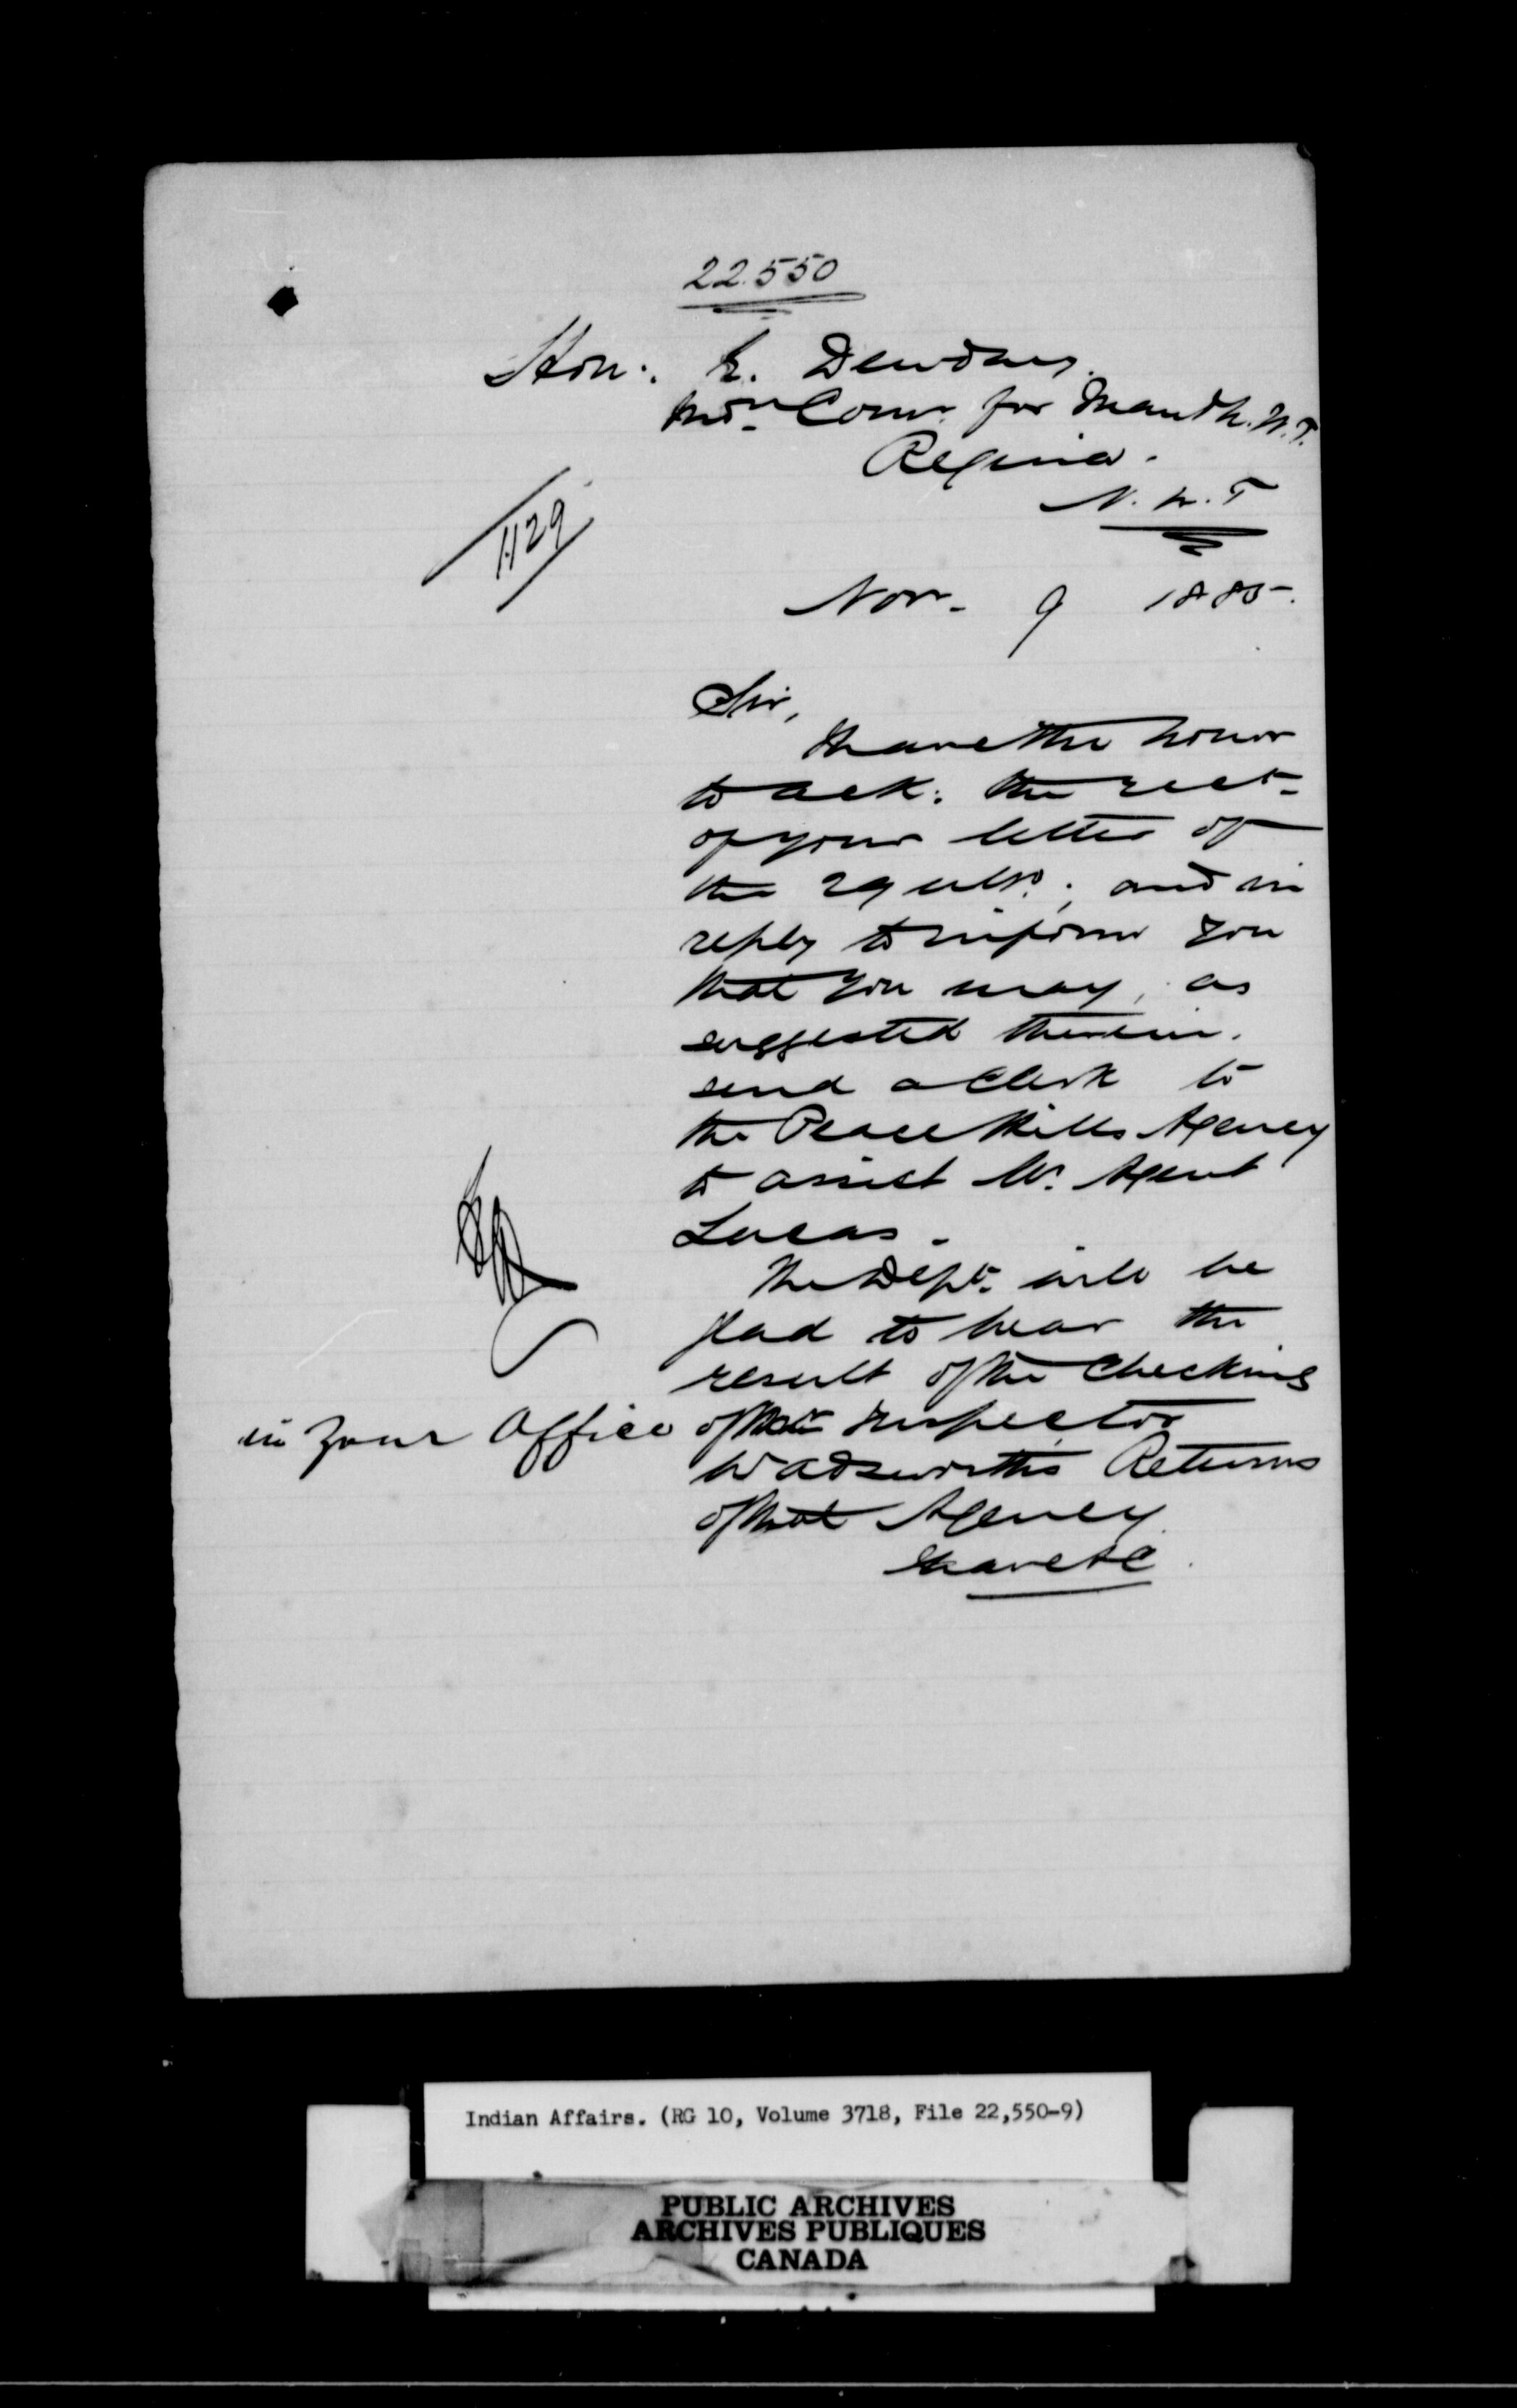 22.550
Hon: E. Dewdney.
Indn Comr for Man & N.W.T.
Regina.
N.W.T
1129
Nov. 9 1885.
Sir,
I have the honor
to ack: the rect.
of your letter of
the 29 ulto; and in
reply to inform you
that you may, as
suggested therein,
send a Clerk to
the Peace Hills Agency
to assist Mr. Agent
Lucas.
The Dept. will be
glad to hear the
result of the Checking
in your Office of Inspector
Wadsworth's Returns
of that Agency
I have &c
Indian Affairs. (RG 10, Volume 3718, File 22,550-9)
PUBLIC ARCHIVES
ARCHIVES PUBLIQUES
CANADA